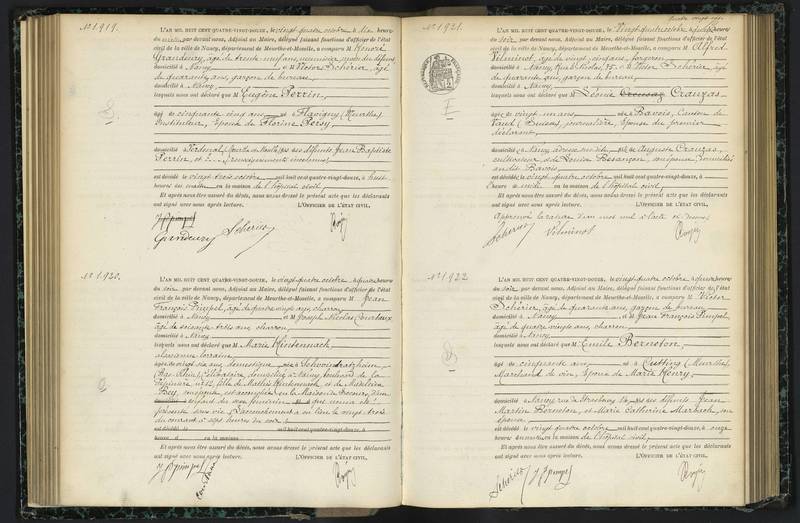 N° 1919.
L'AN MIL HUIT CENT QUATRE-VINGT-DOUZE, le vingt-quatre octobre à dix heures
du matin par devant nous, Adjoint au Maire, délégué faisant fonctions d'officier de l'état
civil de la ville de Nancy, département de Meurthe-et-Moselle, a comparu M Honoré
Grandeury, âgé de trente neuf ans,
domicilié à Nancy et M Victor Schérier, âgé
de quarante ans, garçon de bureau
domicilié à Nancy
lesquels nous ont déclaré que M Eugène Perrin,
âgé de cinquante cinq ans né à Flavigny (Meurthe)
Instituteur, époux de Florine
domicilié fils des défunts Jean Baptiste
Perrin, et
est décédé le vingt trois octobre mil huit cent quatre-vingt-douze, à huit
heures du matin en la maison de l'hôpital civil,
Et après nous être assuré du décès, nous avons dressé le présent acte que les déclarants
ont signé avec nous après lecture. L'OFFICIER DE L'ÉTAT CIVIL,
Grandeury Schérier
N° 1920.
L'AN MIL HUIT CENT QUATRE-VINGT-DOUZE, le vingt-quatre octobre à quatre heures
du soir par devant nous, Adjoint au Maire, délégué faisant fonctions d'officier de l'état
civil de la ville de Nancy, département de Meurthe-et-Moselle, a comparu M Jean
François Pimpel, âgé de quatre vingts ans, charron,
domicilié à Nancy et M Joseph Nicolas
âgé de soixante trois ans charron
domicilié à Nancy
lesquels nous ont déclaré que M Marie
alsacienne lorraine
âgée de vingt six ans domestique née à Schwindratzheim
(Bas-Rhin) célibataire, domiciliée à Nancy,
fille de Mathis et de Madeleine
enfant du sexe féminin
présenté sans vie. L'accouchement a eu lieu le vingt trois
du courant à sept heures du soir
est décédé le mil huit cent quatre-vingt-douze, à
heure d en la maison
Et après nous être assuré du décès, nous avons dressé le présent acte que les déclarants
ont signé avec nous après lecture. L'OFFICIER DE L'ÉTAT CIVIL,
N° 1921.
L'AN MIL HUIT CENT QUATRE-VINGT-DOUZE, le vingt quatre octobre à quatre heures
du soir par devant nous, Adjoint au Maire, délégué faisant fonctions d'officier de l'état
civil de la ville de Nancy, département de Meurthe-et-Moselle, a comparu M Alfred
Vilminot, âgé de vingt cinq ans, forgeron
domicilié à Nancy, et M Victor Schérier, âgé
de quarante ans, garçon de bureau
domicilié à Nancy
lesquels nous ont déclaré que M Léonie Crauzas
E
âgée de vingt un ans née à Bavois, Canton de
Vaud (Suisse), journalière, épouse du premier
déclarant
domiciliée à Nancy fille de Auguste Crauzas,
cultivateur, et de Louise Besançon, son épouse, domiciliés
audit Bavois
est décédée le vingt quatre octobre mil huit cent quatre-vingt-douze, à
heure en la maison de l'hôpital civil,
Et après nous être assuré du décès, nous avons dressé le présent acte que les déclarants
ont signé avec nous après lecture. L'OFFICIER DE L'ÉTAT CIVIL,
Approuvé la rature d'un mot nul à l'acte ci-dessus
Schérier Vilminot
N° 1922
L'AN MIL HUIT CENT QUATRE-VINGT-DOUZE, le vingt-quatre octobre à quatre heures
du soir par devant nous, Adjoint au Maire, délégué faisant fonctions d'officier de l'état
civil de la ville de Nancy, département de Meurthe-et-Moselle, a comparu M Victor
Schérier, âgé de quarante ans, garçon de bureau
domicilié à Nancy et M Jean François Pimpel,
âgé de quatre vingts ans, charron
domicilié à Nancy
lesquels nous ont déclaré que M Emile Berneton
âgé de cinquante ans, né à Cutting (Meurthe)
Marchand de vin, époux de Marie Henry
domicilié à Nancy, rue de Strasbourg fils des défunts Jean
Martin Berneton et Marie Catherine Marbach, son
épouse
est décédé le vingt quatre octobre mil huit cent quatre-vingt-douze, à onze
heures du matin en la maison de l'hôpital civil,
Et après nous être assuré du décès, nous avons dressé le présent acte que les déclarants
ont signé avec nous après lecture. L'OFFICIER DE L'ÉTAT CIVIL,
Schérier